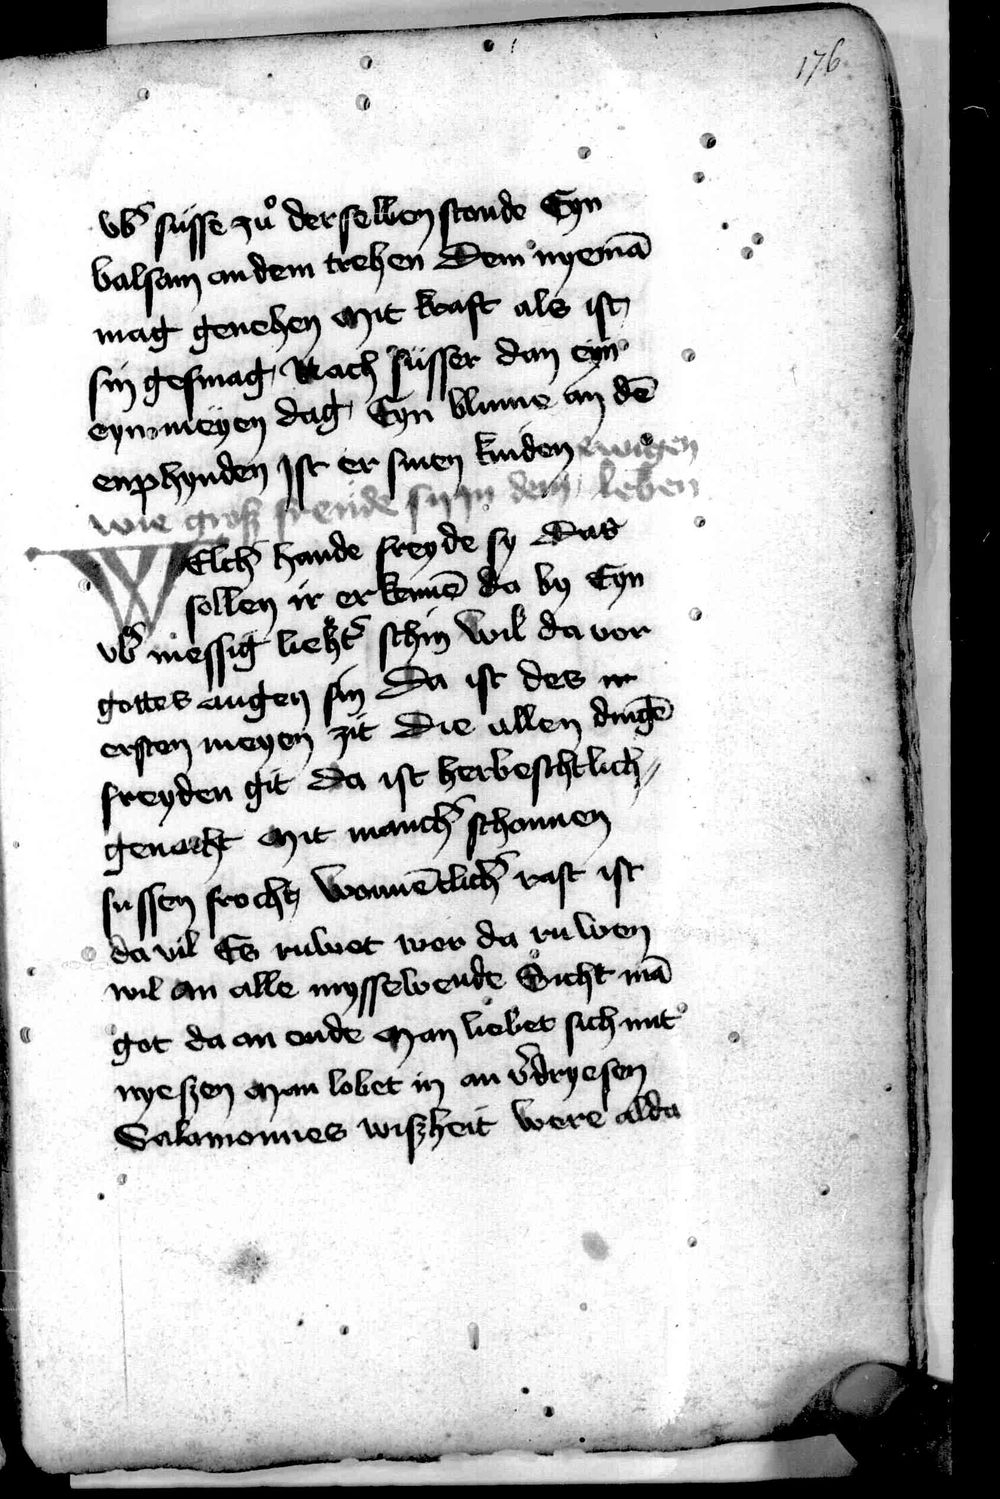 176
vb͛ süsse zů derselben stonde Eyn
balsam an dem trehen Dem nyemā
mag genehen Mit kraft als ist
sin gesmag Nach süsser dan eyn
eyn meyen dag Eyn blume an dē
enphynden Ist er sinen kinden ewigen
wie groß freude sy in dem leben
WElch͛ hande freyde sy Das
sollen ir erkennē da by Eyn
vb͛ messig liehts͛ schin Wil da vor
gottes augen sin Da ist des
ersten meyen zit Die allen dingē
freyden git Da ist herbestlich
genacht Mit manch͛ schonnen
sussen frocht Wonnēclich͛ rast ist
da vil Es ruwet wer da ruwen
wil An alle mysselvende Sicht mā
got da an ende Man liebet sich mit
nyeszen Man lobet in an v͛dryesen
Salamonnes wißheit Were alda